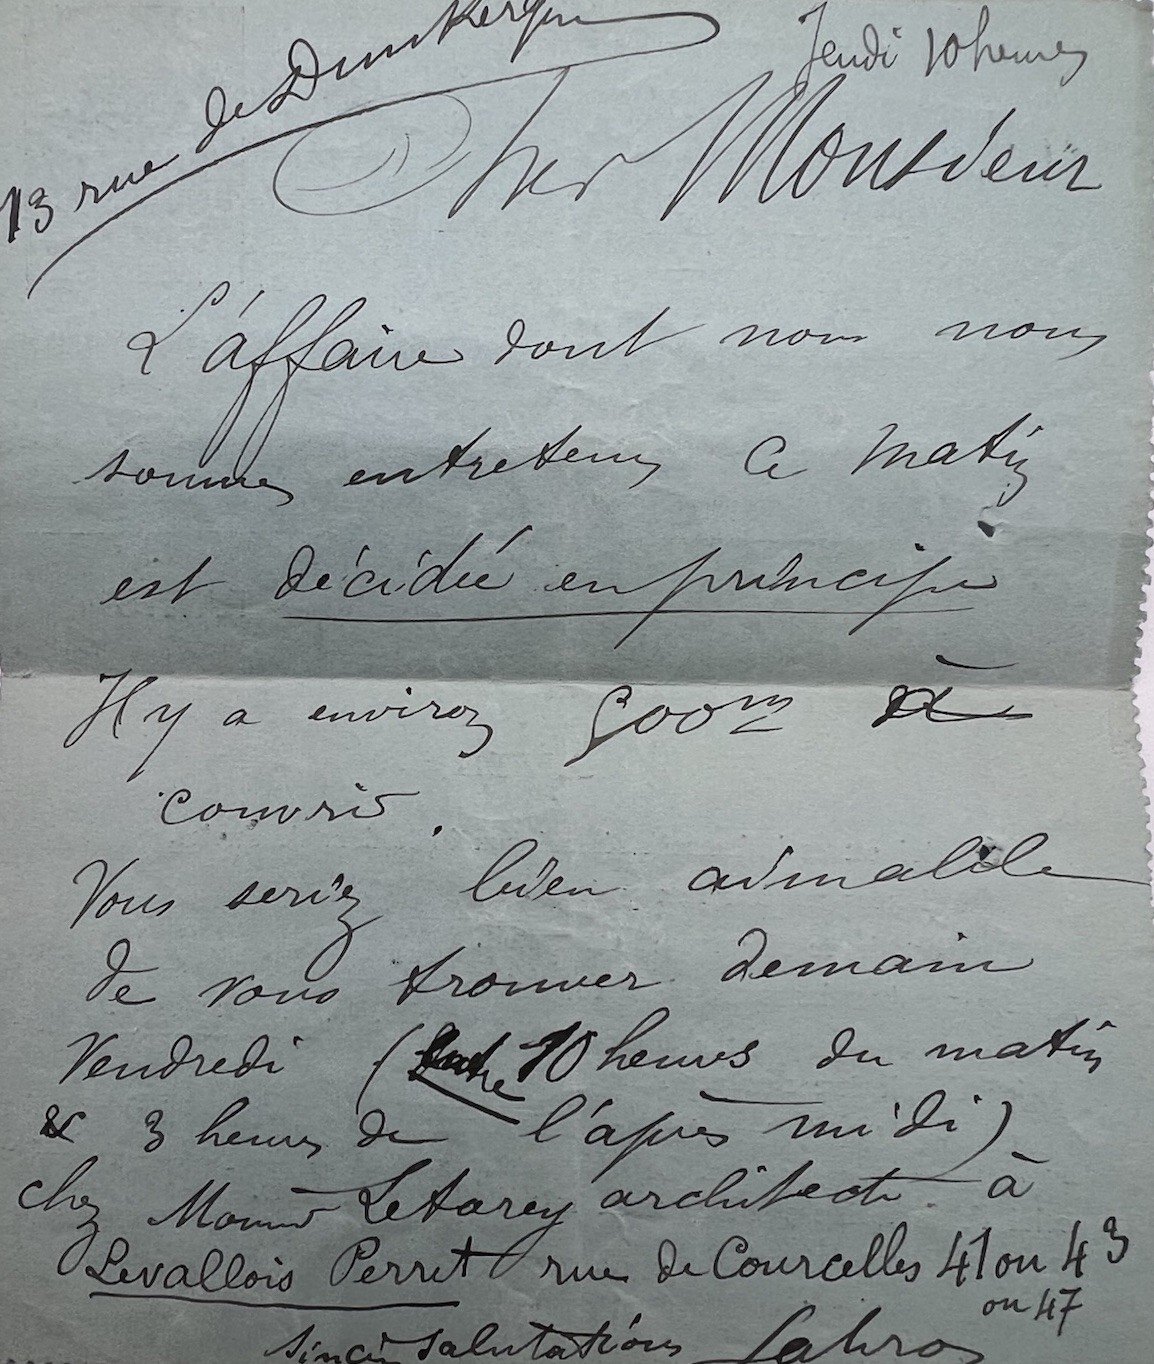 13 rue de Dunkerque
Jeudi 10 heures
Cher Monsieur
L'affaire dont nous nous
sommes entretenus ce matin
est décidée en principe
Il y a environ 500 m à
couvrir.
Vous seriez bien aimable
de vous trouver demain
Vendredi (Entre 10 heures du matin
& 3 heures de l'après midi)
chez Letarey architecte à
Levallois Perret rue de Courcelles 41 ou 43
ou 47
salutations